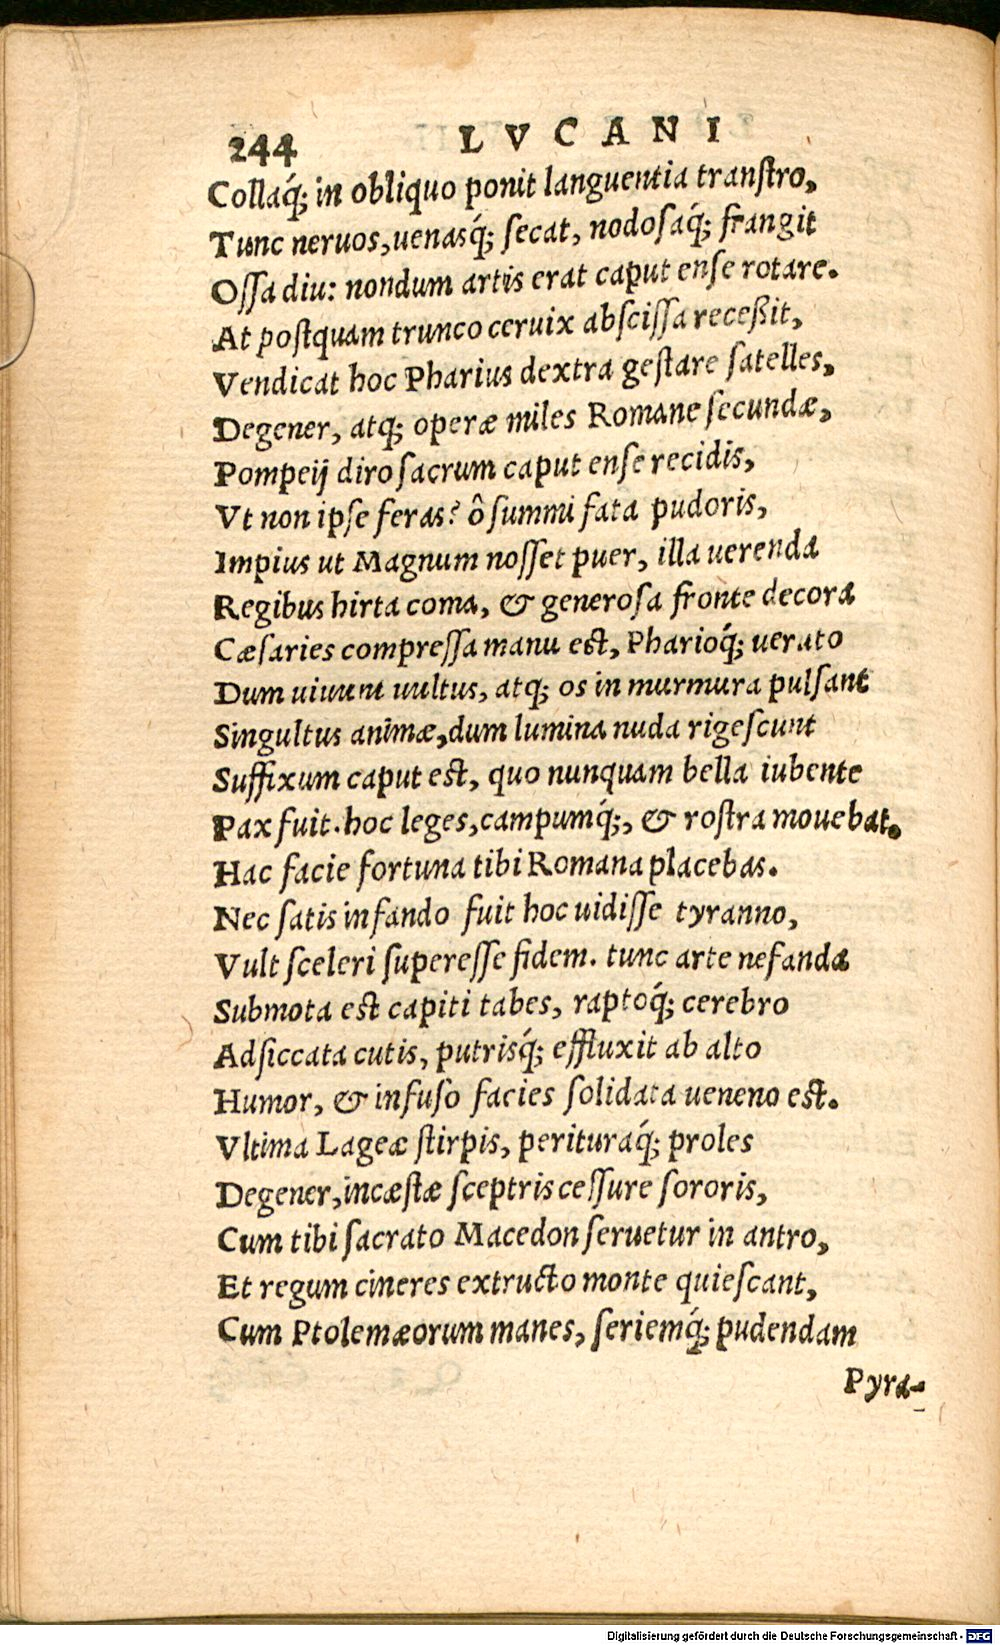 244 LVCANI
Collaq́; in obliquo ponit languentia tranſtro,
Tunc neruos, uenasq́; ſecat, nodoſaq́; frangit
Oſſa diu: nondum artis erat caput enſe rotare.
At poſtquam trunco ceruix abſciſſa receßit,
Vendicat hoc Pharius dextra geſtare ſatelles,
Degener, atq; operæ miles Romane ſecundæ,
Pompeij diro ſacrum caput enſe recidis,
Vt non ipſe feras? ô ſummi fata pudoris,
Impius ut Magnum noſſet puer, illa uerenda
Regibus hirta coma, & generoſa fronte decora
Cæſaries compreſſa manu est, Pharioq́; uerato
Dum uiuunt uultus, atq; os in murmura pulſant
Singultus animæ, dum lumina nuda rigeſcunt
Suffixum caput est, quo nunquam bella iubente
Pax fuit. hoc leges, campumq́;, & roſtra mouebat.
Hac facie fortuna tibi Romana placebas.
Nec ſatis infando fuit hoc uidiſſe tyranno,
Vult ſceleri ſupereſſe fidem. tunc arte nefanda
Submota est capiti tabes, raptoq́; cerebro
Adſiccata cutis, putrisq́; effluxit ab alto
Humor, & infuſo facies ſolidata ueneno est.
Vltima Lageæ ſtirpis, perituraq́; proles
Degener, incæſtæ ſceptris ceſſure ſororis,
Cum tibi ſacrato Macedon ſeruetur in antro,
Et regum cineres extructo monte quieſcant,
Cum Ptolemæorum manes, ſeriemq́; pudendam
Pyra-
Digitalisierung gefördert durch die Deutsche Forschungsgemeinschaft - DFG